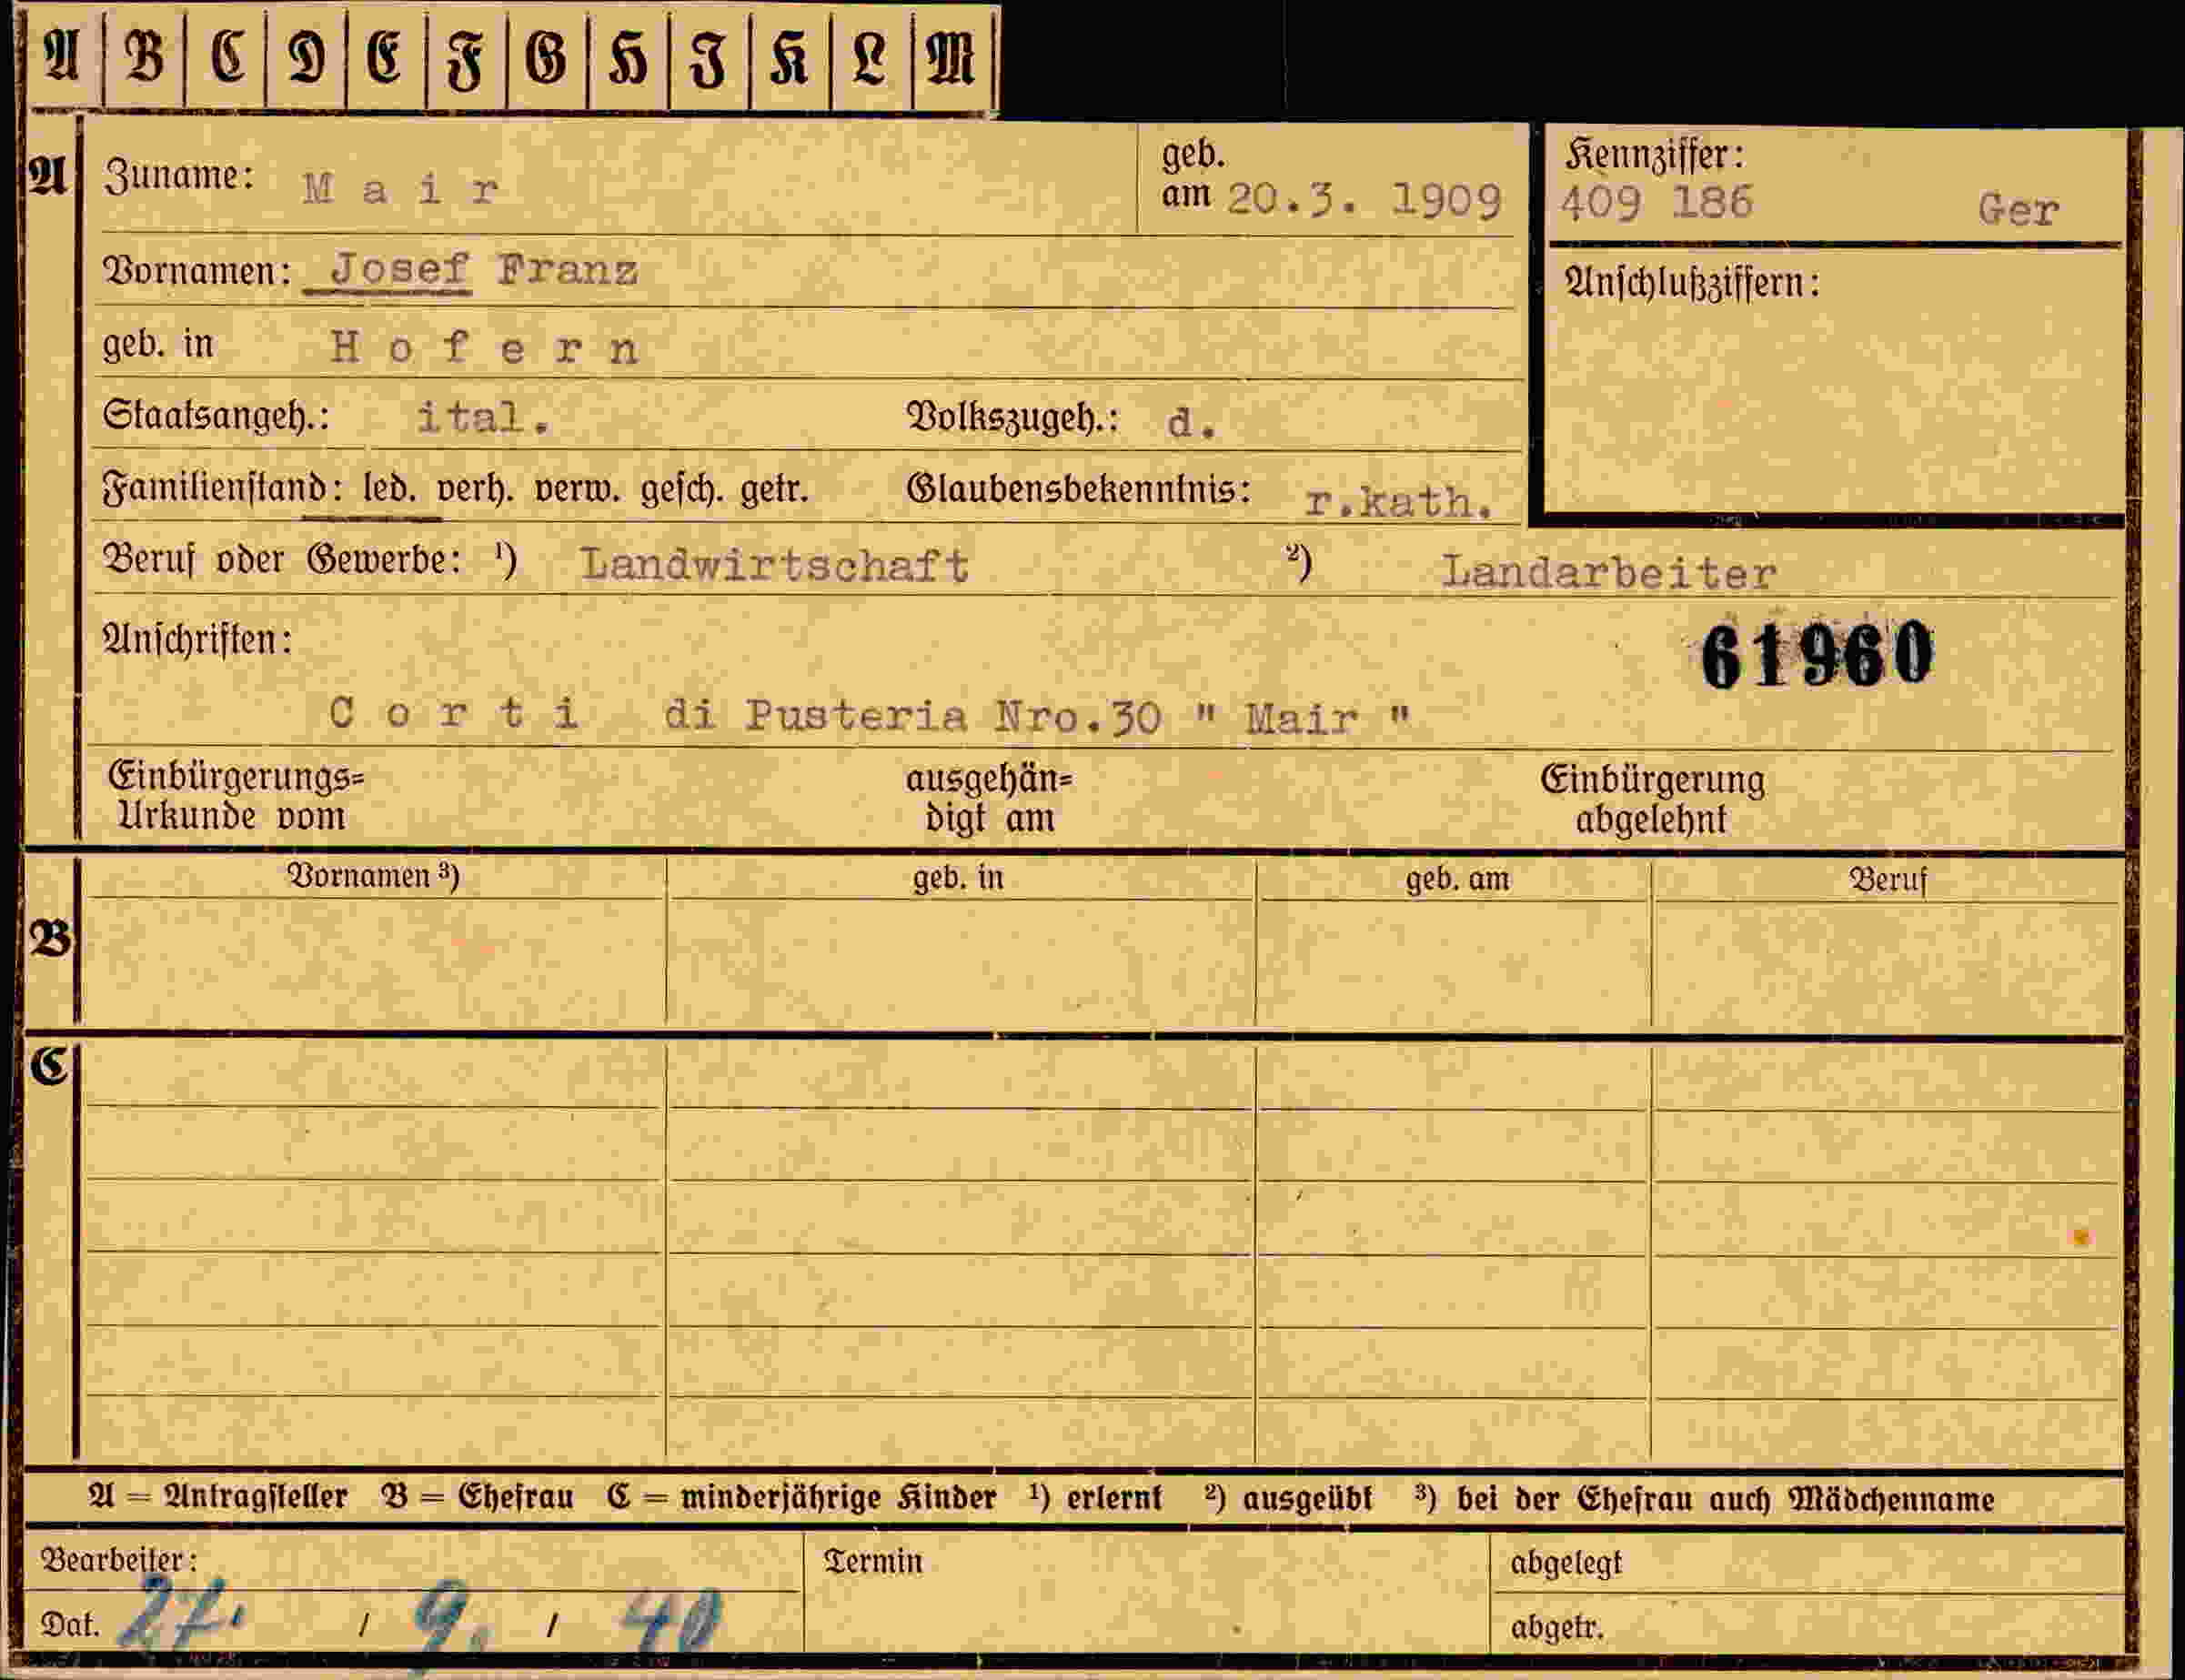 A B C D E F G H I K L M
A Zuname: Mair geb. am 20.3. 1909 Kennziffer: 409 186 Ger
Vornamen: Josef Franz Anschlußziffern:
geb. in Hofern
Staatsangeh.: ital. Volkszugeh.: d.
Familienstand: led. verh. verw. gesch. getr. Glaubensbekenntnis: r.kath.
Beruf oder Gewerbe: ¹) Landwirtschaft ²) Landarbeiter
Anschriften: 61960
Corti di Pusteria Nro.30 " Mair "
Einbürgerungs= ausgehän= Einbürgerung
Urkunde vom digt am abgelehnt
Vornamen ³) geb. in geb. am Beruf
B
C
A = Antragsteller B = Ehefrau C = minderjährige Kinder ¹) erlernt ²) ausgeübt ³) bei der Ehefrau auch Mädchenname
Bearbeiter: Termin abgelegt
Dat. 27. / 9. / 40 abgetr.